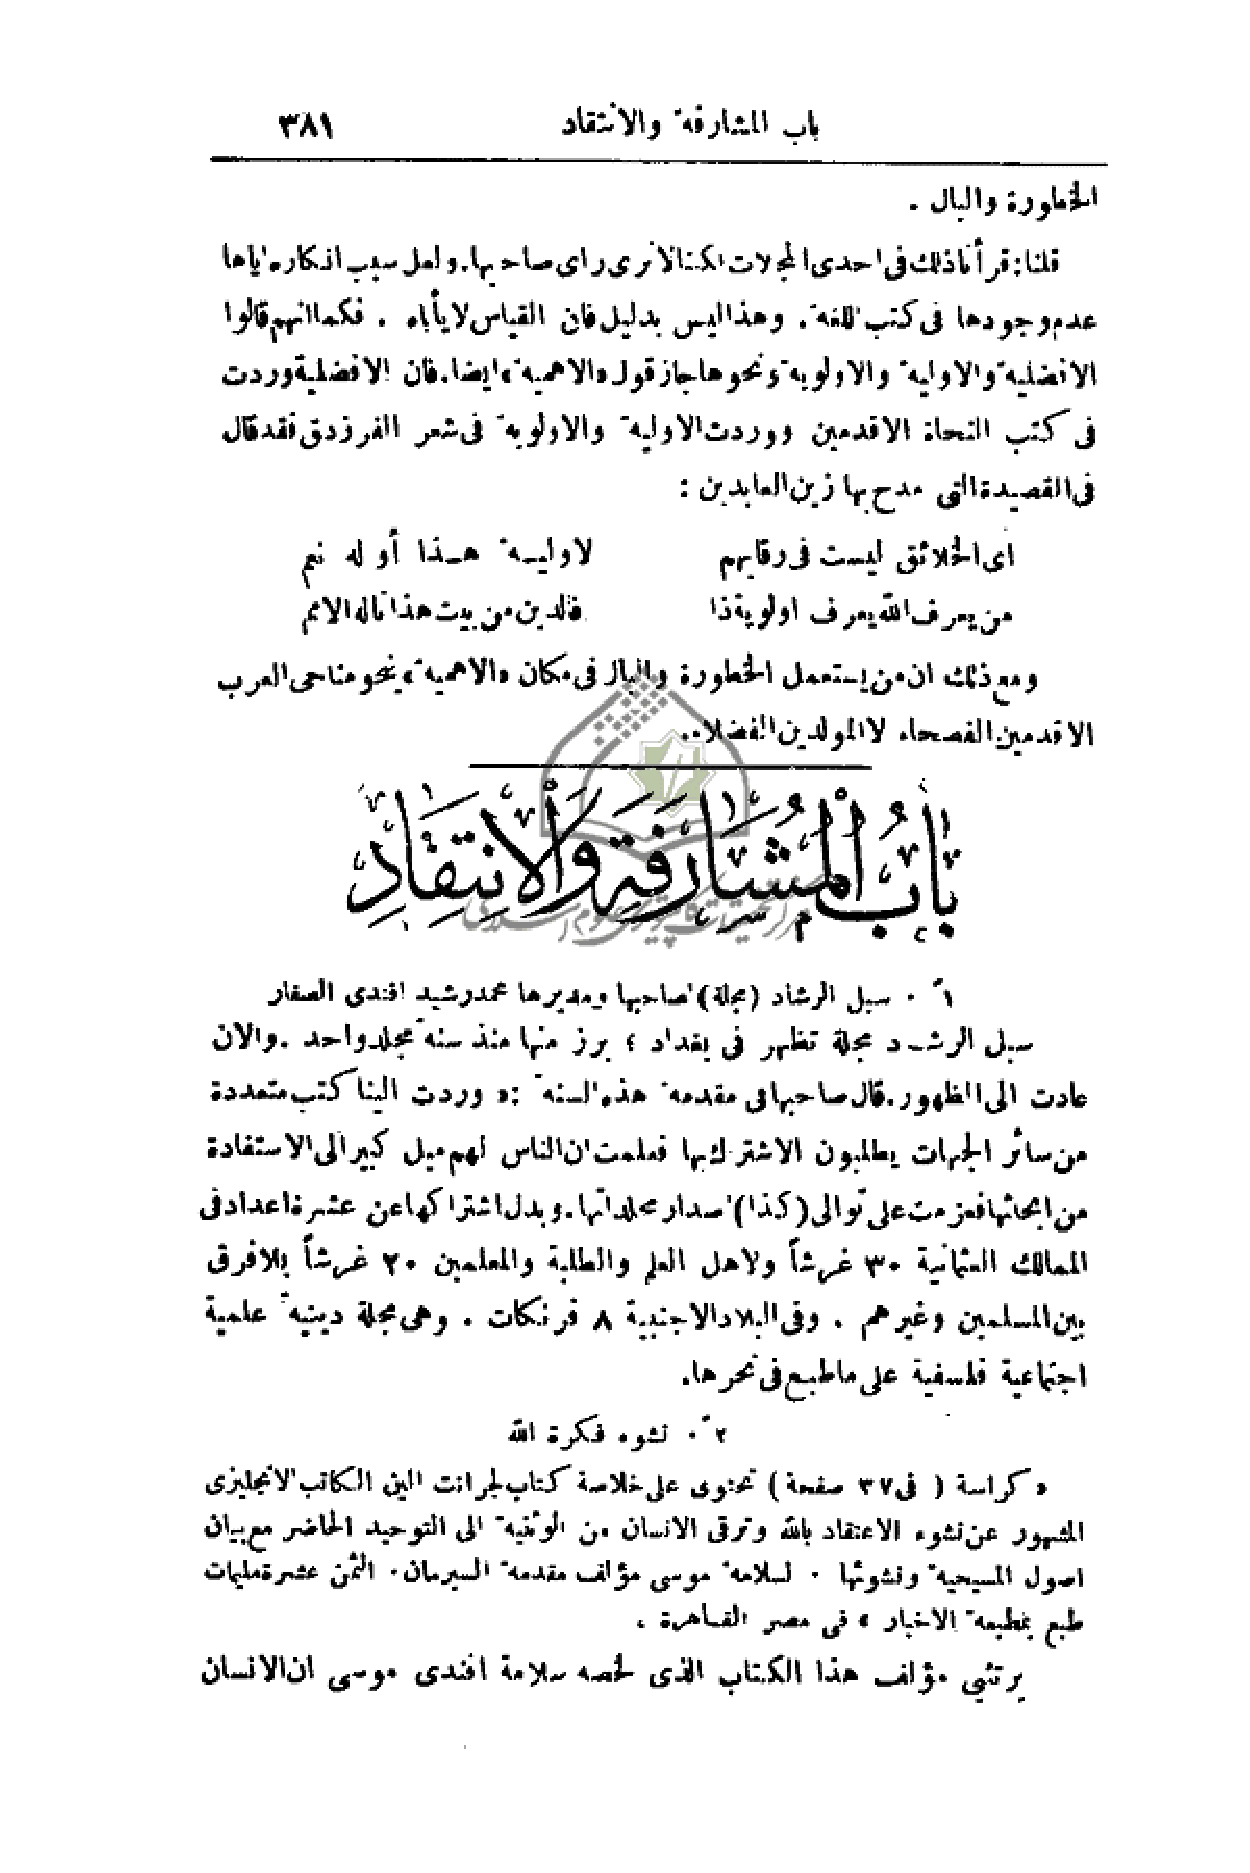 باب المشارفة والانتقاد ٣٨١
الخطورة والبال .
قلنا : قرأنا ذلك في احدى المجلات لكننا لا نرى راى صاحبها. ولعل سبب انكاره اياها
عدم وجودها فى كتب اللغة. وهذا ليس بدليل فان القياس لا يأباه . فكما انهم قالوا
الافضلية والاولية والاولوية ونحوها جاز قول «الاهمية» ايضا. فان الافضلية وردت
فى كتب النحاة الاقدمين ووردت الاولية والاولوية فى شعر الفرزدق فقد قال
فى القصيدة التى مدح بها زين العابدين :
اى الخلائق ليست فى رقابهم لاوليـة هـذا أو له نعم
من يعرف الله يعرف اولوية ذا فالدين من بيت هذا ناله الامم
ومع ذلك ان من يستعمل الخطورة والبال فى مكان «الاهمية» ينحو مناحى العرب
الاقدمين الفصحاء لا المولدين الفضلاء.
بَابُ الْمُشَارَفَةِ وَالْانْتِقَادِ
مرکز تحقیقات کامپیوتری علوم اسلامی
١ً . سبل الرشاد (مجلة) صاحبها ومديرها محمد رشيد افندى الصفار
سبل الرشـاد مجلة تظهر فى بغداد ؛ برز منها منذ سنة مجلد واحد . والان
عادت الى الظهور. قال صاحبها فى مقدمة هذه السنة : « وردت الينا كتب متعددة
من سائر الجهات يطلبون الاشتراك بها فعلمت ان الناس لهم ميل كبير الى الاستفادة
من ابحاثها فعزمت على توالى (كذا) اصدار مجلداتها. وبدل اشتراكها عن عشرة اعداد فى
الممالك العثمانية ٣٠ غرشاً ولاهل العلم والطلبة والمعلمين ٢٠ غرشاً بلا فرق
بين المسلمين وغيرهم . وفى البلاد الاجنبية ٨ فرنكات . وهى مجلة دينية علمية
اجتماعية فلسفية على ما طبع فى نحرها.
٢ً . نشوء فكرة الله
« كراسة ( فى ٣٧ صفحة ) تحتوى على خلاصة كتاب لجرانت الين الكاتب الانجليزى
المشهور عن نشوء الاعتقاد بالله وترقى الانسان من الوثنية الى التوحيد الحاضر مع بيان
اصول المسيحية ونشوئها . لسلامة موسى مؤلف مقدمة السبرمان . الثمن عشرة مليمات
طبع بمطبعة الاخبار » فى مصر القاهرة .
يرتئى مؤلف هذا الكتاب الذى لخصه سلامة افندى موسى ان الانسان